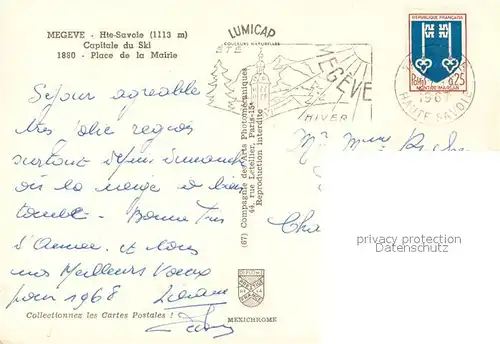 MEGEVE - Hte-Savoie (1113 m)
Capitale du Ski
1880 - Place de la Mairie
LUMICAP
COULEURS NATURELLES
MEGÈVE
HIVER
REPUBLIQUE FRANÇAISE
0,25
MONT-DE-MARSAN
1967
HAUTE SAVOIE
Séjour agréable
très jolie région
surtout depuis dimanche
où la neige a bien
tombé. Bonne Fin
d'Année et tous
nos Meilleurs Voeux
pour 1968
(67) Compagnie des Arts Photomécaniques
44, rue Letellier, Paris-15e
Reproduction interdite
privacy protection
Datenschutz
Collectionnez les Cartes Postales !
MEXICHROME